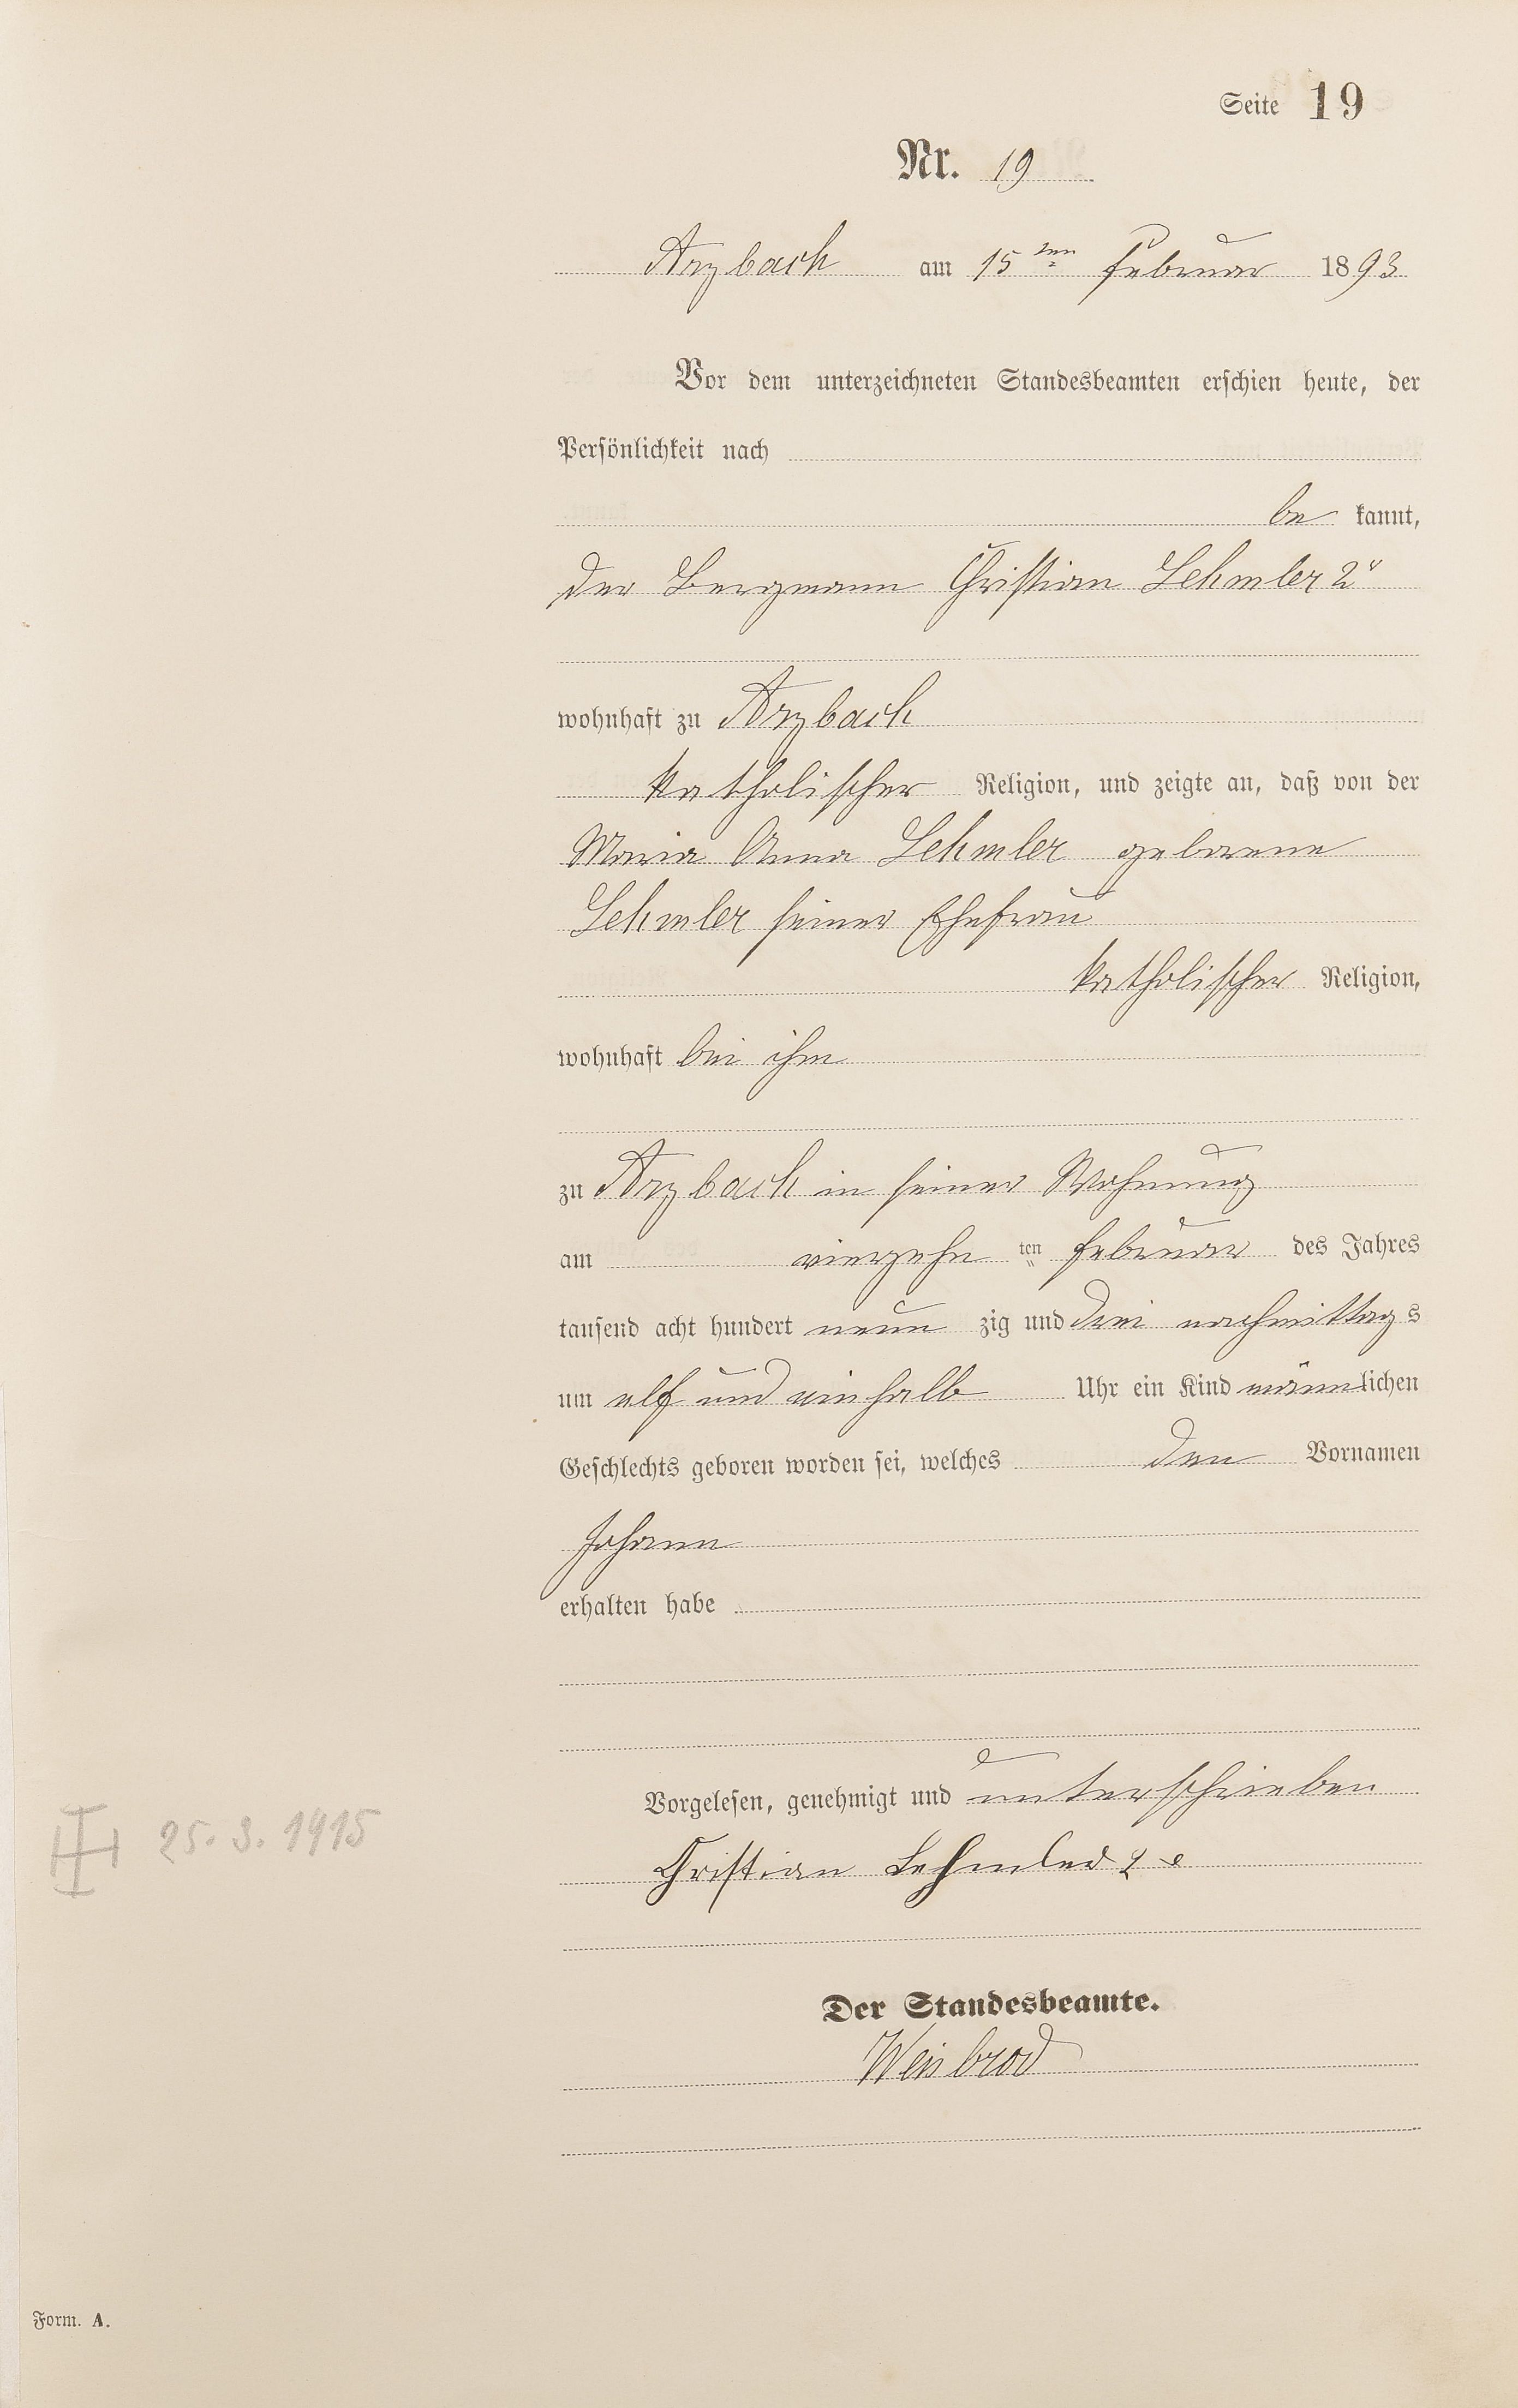 Seite 19
Nr. 19
Arzbach am 15ten Februar 1893
Vor dem unterzeichneten Standesbeamten erschien heute, der
Persönlichkeit nach
be kannt,
der Bergmann Christian Lehmler 2"
wohnhaft zu Arzbach
katholischer Religion, und zeigte an, daß von der
Maria Anna Lehmler geborene
Lehmler seiner Ehefrau
katholischer Religion,
wohnhaft bei ihm
zu Arzbach in seiner Wohnung
am vierzehn ten Februar des Jahres
tausend acht hundert neun zig und drei nachmittags
um elf und einhalb Uhr ein Kind männlichen
Geschlechts geboren worden sei, welches den Vornamen
Johann
erhalten habe
Vorgelesen, genehmigt und unterschrieben
25. 3. 1915
Christian Lehmler
Der Standesbeamte.
Weisbrod
Form. A.